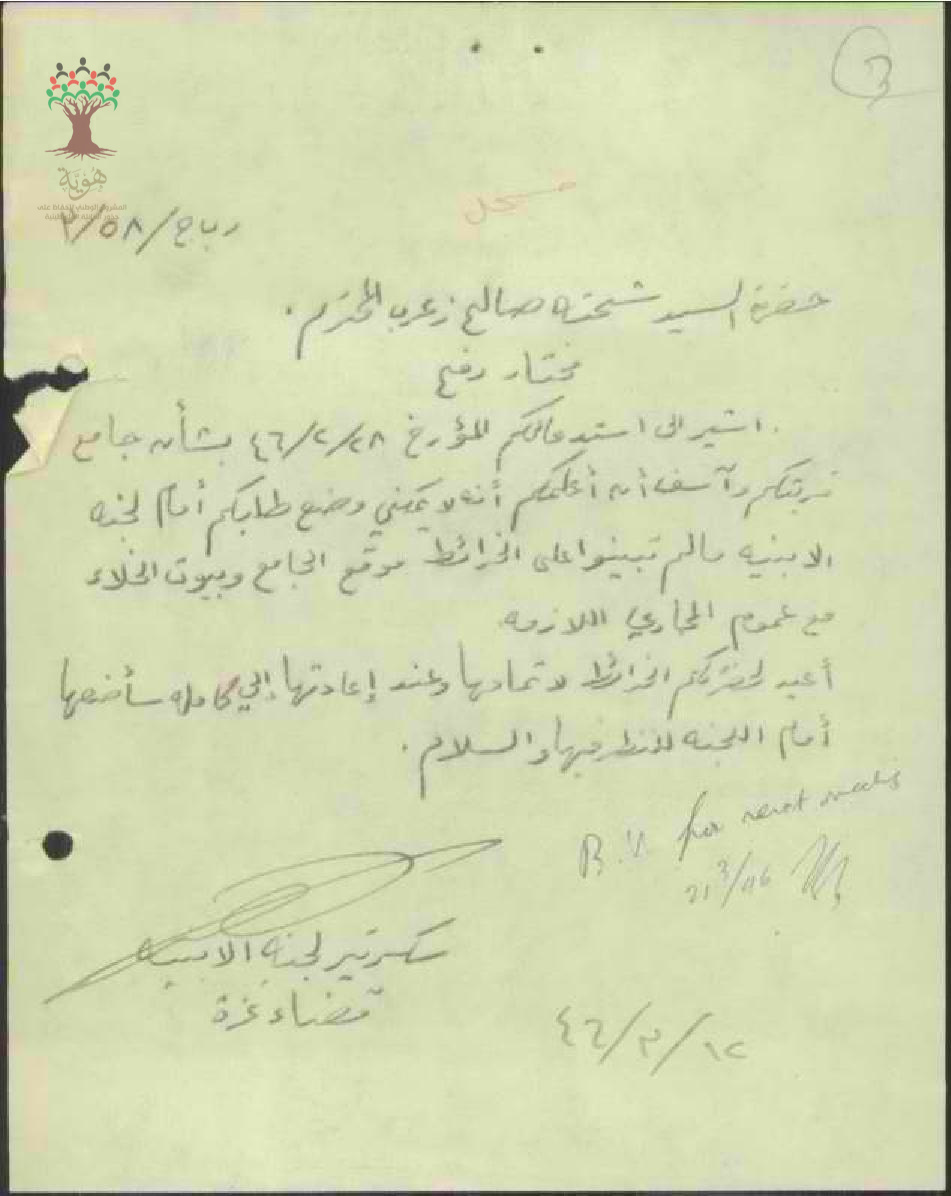 3
هوية
المشروع الوطني للحفاظ على
جذور العائلة الفلسطينية
مسجل
رباح/٣/٥٨
حضرة السيد شحته صالح زعرب المحترم.
مختار رفح
اشير الى استدعائكم المؤرخ ٤٦/٢/٢٨ بشأن جامع
قريتكم وآسف أن أعلمكم أنه لا يمكنني وضع طلبكم أمام لجنة
الابنيه ما لم تبينوا على الخرائط موقع الجامع وبيوت الخلاء
مع عموم المجاري اللازمه.
أعيد لحضرتكم الخرائط لاتمامها وعند إعادتها إلي كامله سأضعها
أمام اللجنه للنظر فيها والسلام.
B.U. for next meeting
21/3/46
سكرتير لجنة الابنيه
قضاء غزة
٤٦/٣/١٢